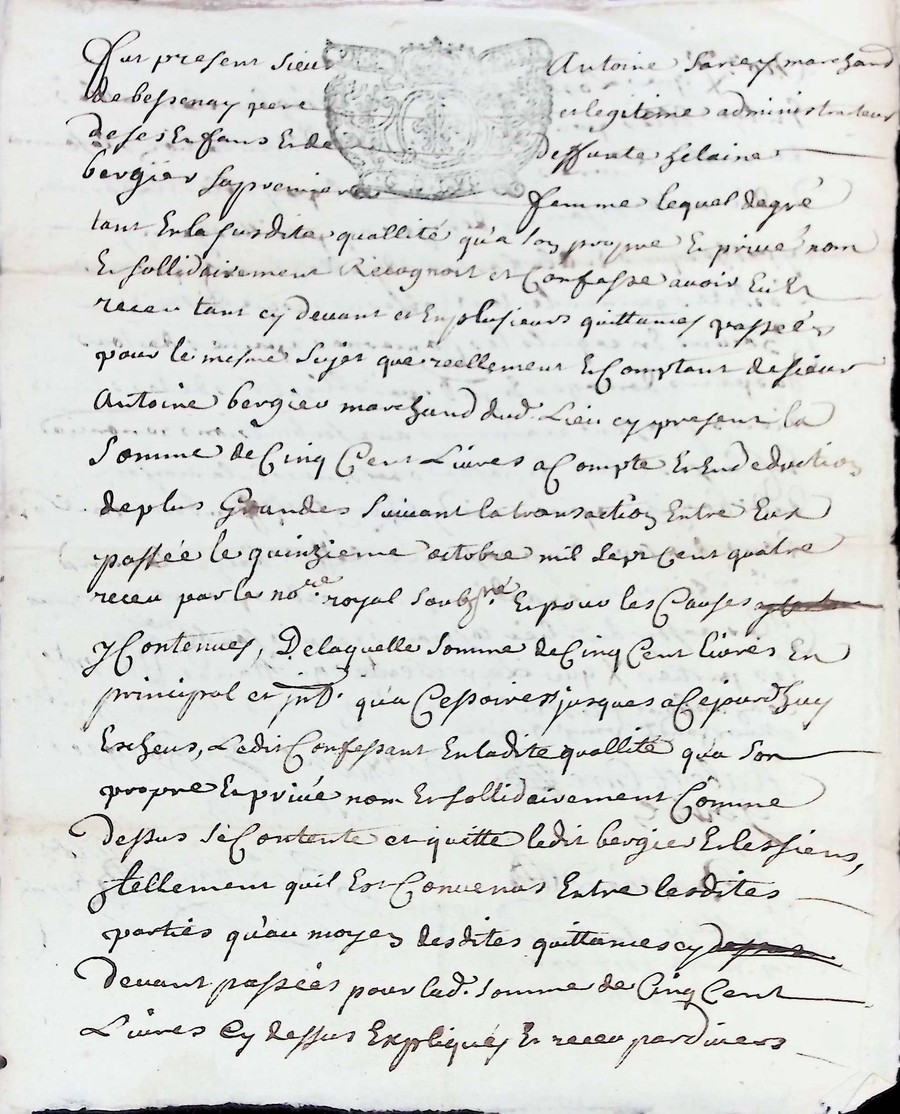 Fut present sieur Antoine Sariey marchand
de bessenay pere et legitime administrateur
de ses Enfans Et de deffunte helaine
bergier sa premiere femme lequel de gré
tant En la susditte quallité qu'a son propre Et privé nom
Et sollidairement Recognoit et Confesse avoir Eu Et
receu tant cy devant et En plusieurs quittances passées
pour le mesme sujet que reellement Et Comptant de sieur
Antoine bergier marchand dud. Lieu cy present la
somme de Cinq Cent Livres a Compte Et En deduction
de plus Grandes suivant la transaction Entre Eux
passée le quinzieme octobre mil sept Cent quatre
receu par le no.re royal soubz.né Et pour les Causes
y Contenues, De laquelle somme de Cinq Cent livres En
principal et int. qu'a Cessoires jusques a Cejourd'huy
Escheus, Ledit Confessant En ladite quallité qu'a son
propre Et privé nom Et sollidairement Comme
dessus se Contente et quitte ledit bergier Et les siens,
tellement quil Est Convenus Entre lesdites
parties qu'au moyen desdites quittances cy
devant passées pour lad. somme de Cinq Cent
Livres cy dessus Expliqués Et receu par divers